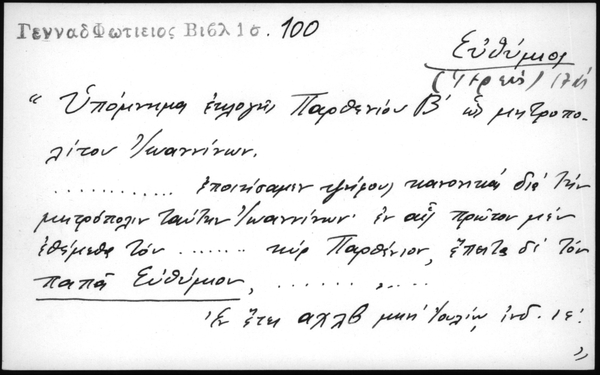 ΓενναδΦωτιειος Βιβλ 1σ. 100
Εὐθύμιος
(ἱερεύς) 17ος
“ Ὑπόμνημα ἐκλογῆς Παρθενίου Β′ ὡς μητροπο-
λίτου Ἰωαννίνων.
........... ἐποιήσαμεν ψήφους κανονικὰς διὰ τὴν
μητρόπολιν ταύτην Ἰωαννίνων· ἐν αἷς πρῶτον μὲν
ἐθέμεθα τὸν ....... κὺρ Παρθένιον, ἔπειτα δὲ τὸν
παπᾶ Εὐθύμιον, ...... , ....
Ἐν ἔτει αχλβ μηνὶ Ἰουλίῳ, ἰνδ. ιε΄.
”